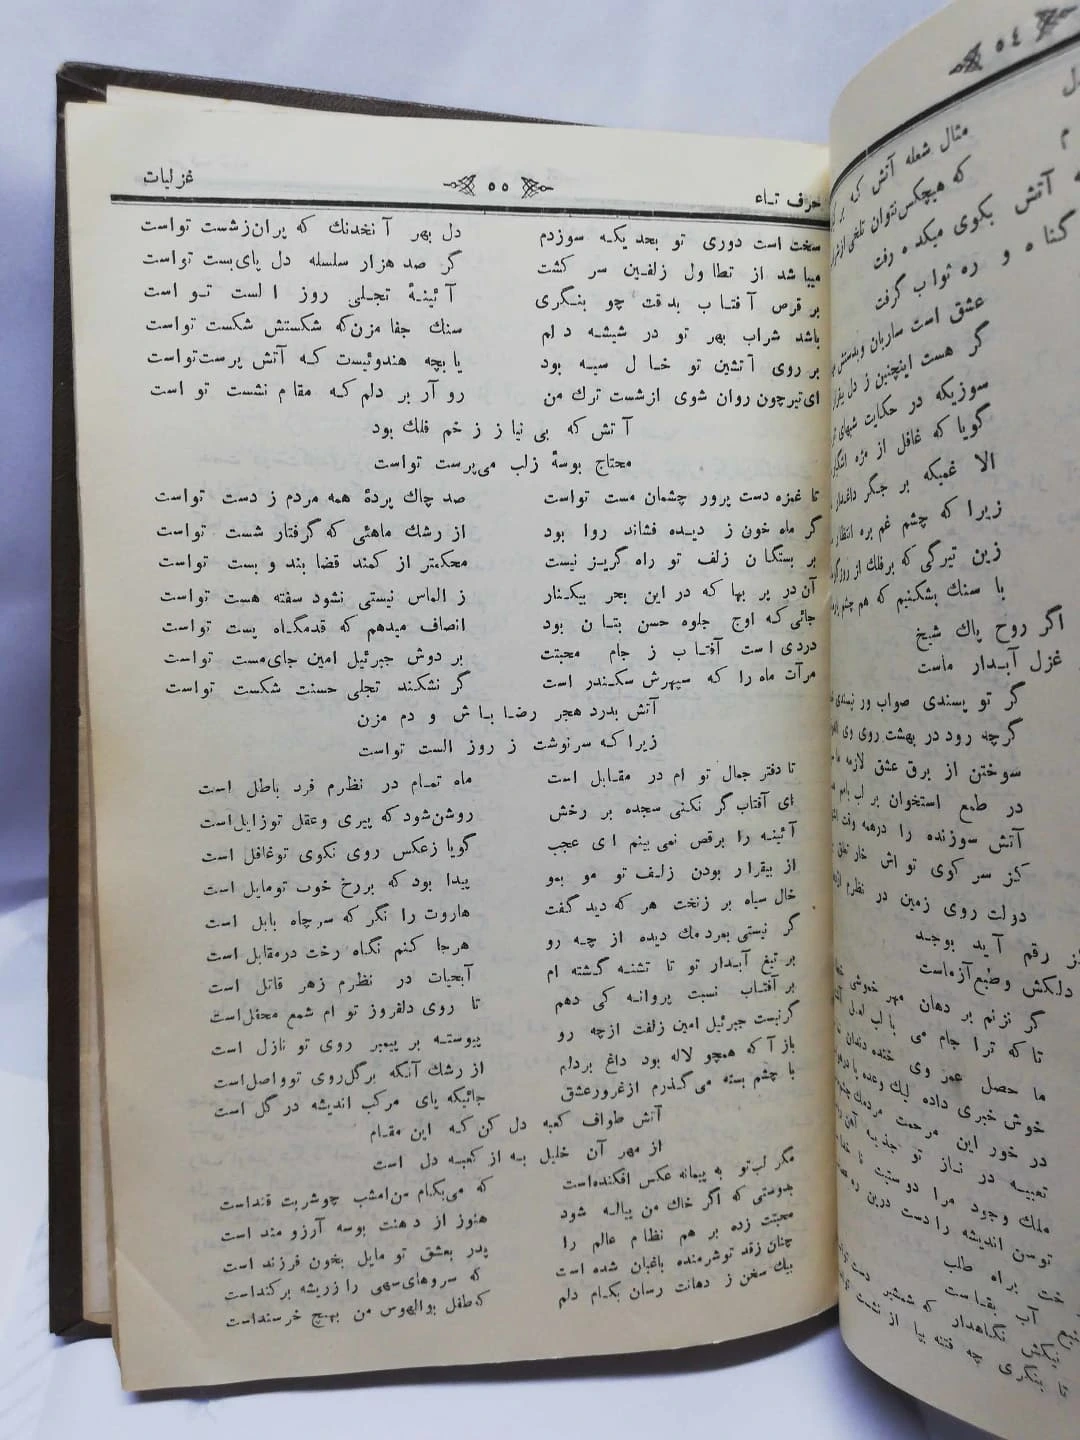 حرف تاء
۵۵
غزلیات
سخت است دوری تو بحدیکه سوزدم دل بهر آنخدنك که پران‌زشست تواست
میباشد از تطاول زلفین سر کشت گر صد هزار سلسله دل پای‌بست تواست
بر قرص آفتاب بدقت چو بنگری آئینهٔ تجلی روز الست تواست
باشد شراب بهر تو در شیشه دلم سنك جفا مزن‌که شکستش شکست تواست
بر روی آتشین تو خال سیه بود یا بچه هندوئیست که آتش پرست‌تواست
ای‌تیرچون روان شوی ازشست ترك من رو آر بر دلم که مقام نشست تواست
آتش که بی نیاز ز زخم فلك بود
محتاج بوسهٔ زلب می‌پرست تواست
تا غمزه دست پرور چشمان مست تواست صد چاك پردهٔ همه مردم ز دست تواست
گر ماه خون ز دیده فشاند روا بود از رشك ماهئی که گرفتار شست تواست
بر بستگان زلف تو راه گریز نیست محکمتر از کمند قضا بند و بست تواست
آن در پر بها که در این بحر بیکنار ز الماس نیستی نشود سفته هست تواست
جائی که اوج جلوه حسن بتان بود انصاف میدهم که قدمگاه پست تواست
دردی است آفتاب ز جام محبتت بر دوش جبرئیل امین جای‌مست تواست
مرآت ماه را که سپهرش سکندر است گر نشکند تجلی حسنت شکست تواست
آتش بدرد هجر رضا باش و دم مزن
زیرا که سرنوشت ز روز الست تواست
تا دفتر جمال تو ام در مقابل است ماه تمام در نظرم فرد باطل است
ای آفتاب گر نکنی سجده بر رخش روشن‌شود که پیری وعقل توزایل‌است
آئینه را برقص نمی بینم ای عجب گویا زعکس روی نکوی توغافل است
از بیقرار بودن زلف تو مو بمو پیدا بود که بررخ خوب تومایل است
خال سیاه بر زنخت هر که دید گفت هاروت را نگر که سرچاه بابل است
گر نیستی بمردمك دیده از چه رو هرجا کنم نگاه رخت درمقابل است
بر تیغ آبدار تو تا تشنه گشته ام آبحیات در نظرم زهر قاتل است
بر آفتاب نسبت پروانه کی دهم تا روی دلفروز تو ام شمع محفل‌است
گرنیست جبرئیل امین زلفت ازچه رو پیوسته بر پیمبر روی تو نازل است
باز آ که همچو لاله بود داغ بردلم از رشك آنکه برگل‌روی توواصل‌است
با چشم بسته می‌گذرم ازغرورعشق جائیکه پای مرکب اندیشه در گل است
آتش طواف کعبه دل کن که این مقام
از مهر آن خلیل به از کعبه دل است
مگر لب‌تو به پیمانه عکس افکنده‌است که می‌بکام من‌امشب چوشربت قنداست
بدوستی که اگر خاك من پیاله شود هنوز از دهنت بوسه آرزو مند است
محبتت زده بر هم نظام عالم را پدر بعشق تو مایل بخون فرزند است
چنان زقد توشرمنده باغبان شده است که سروهای‌سهی را زریشه برکنداست
بیك سخن ز دهانت رسان بکام دلم که‌طفل بوالهوس من بهیچ خرسنداست
۵٤
مثال شعله آتش که
که هیچکس نتوان تلخی
آتش بکوی میکده رفت
گناه و ره ثواب گرفت
عشق است ساربان
گر هست اینچنین ز دل
سوزیکه در حکایت شبهای
گویا که غافل از مژه
الا غمیکه بر جگر
زیرا که چشم غم بره انتظار
زین تیرگی که برفلك از
با سنك بشکنیم که هم چشم
اگر روح پاك شیخ
غزل آبدار ماست
گر تو پسندی صواب ور
گرچه رود در بهشت روی
سوختن از برق عشق لازمه
در طمع استخوان بر لب
آتش سوزنده را درهمه وقت
کز سر کوی تو اش خار
دولت روی زمین در نظرم
رقم آید بوجد
دلکش وطبع آزماست
گر نزنم بر دهان مهر خموشی
تا که ترا جام می با لب
ما حصل عمر وی خنده دندان
خوش خبری داده لیك وعده
در خور این مرحمت مردمك
تعبیه در ناز تو جذبه
ملك وجود مرا دوستیت
توسن اندیشه را دست درین ره
براه طلب
آب بقاست
نگاهدار که شمشیر دست
تا بنگری چه فتنه بپا از نشست